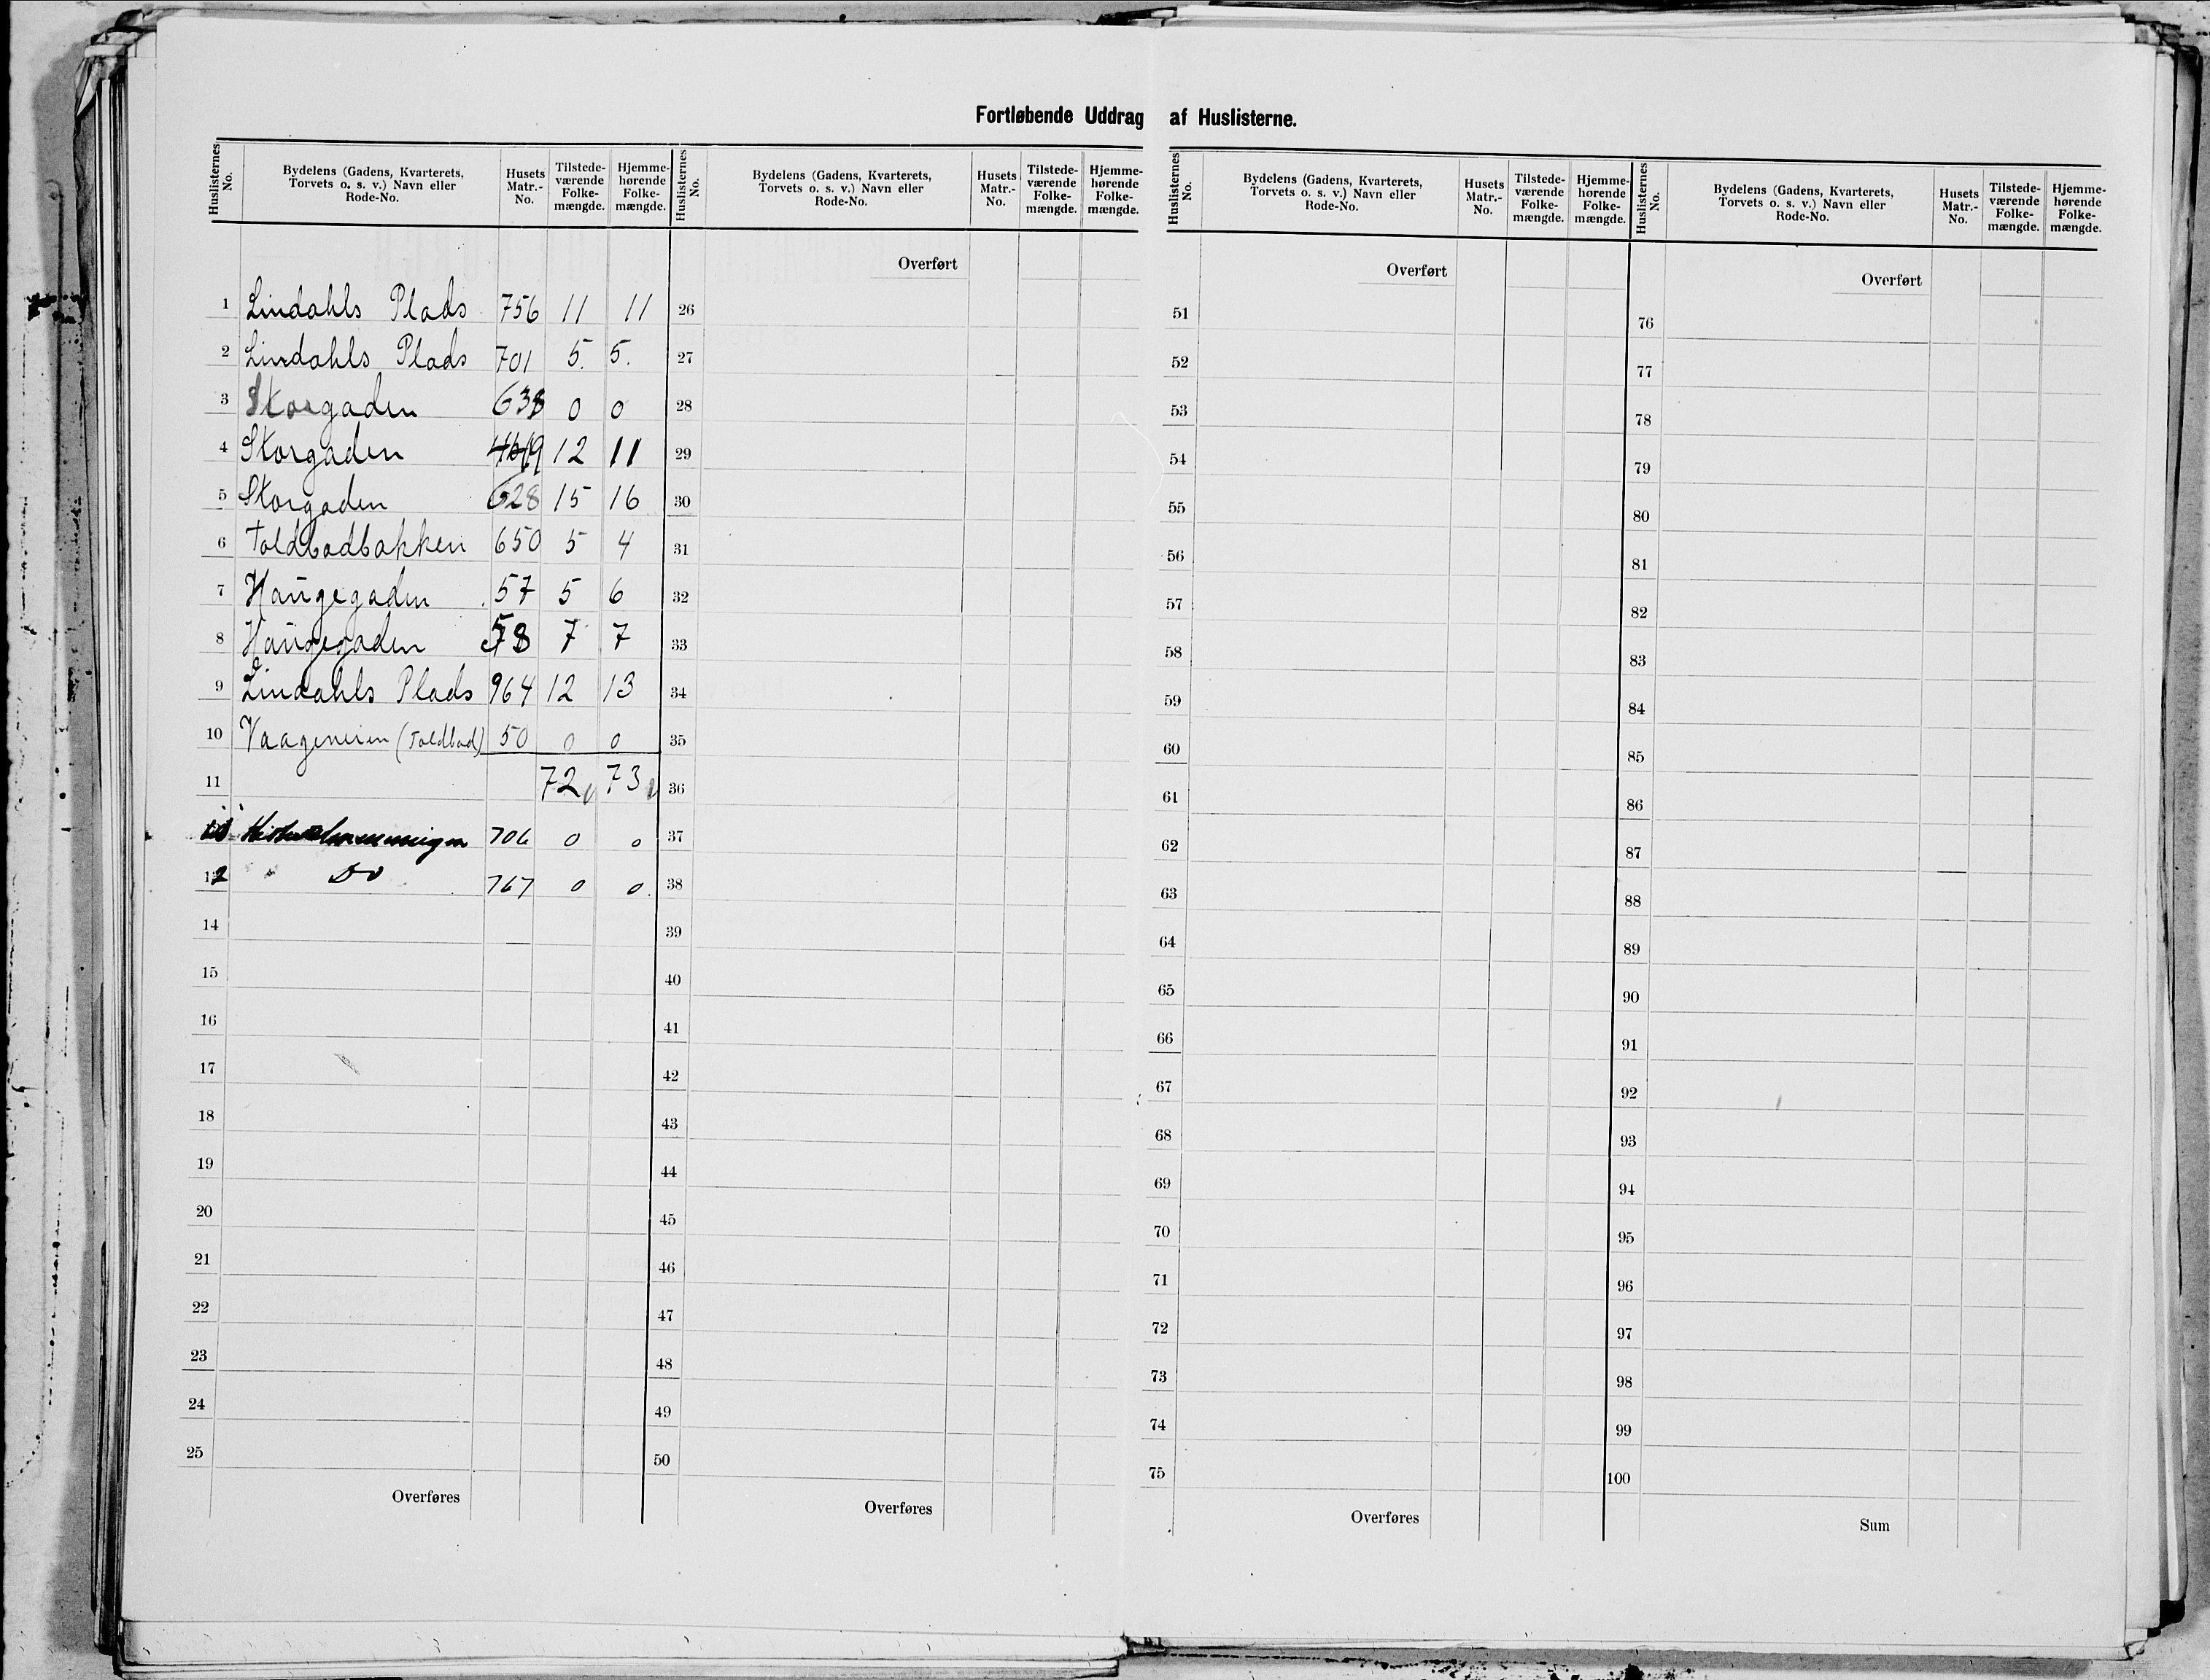 Fortløbende Uddrag af Huslisterne.
Huslisternes No. Bydelens (Gadens, Kvarterets, Torvets o. s. v.) Navn eller Rode-No. Husets Matr.-No. Tilstedeværende Folkemængde. Hjemmehørende Folkemængde.
1 Lindahls Plads 756 11 11
2 Lindahls Plads 701 5. 5.
3 Storgaden 638 0 0
4 Storgaden 12 11
5 Storgaden 628 15 16
6 Toldbodbakken 650 5 4
7 Haugegaden 57 5 6
8 Haugegaden 58 7 7
9 Lindahls Plads 964 12 13
10 Vaageveien (Toldbod) 50 0 0
11 72 73
706 0 0
Do 767 0 0
14
15
16
17
18
19
20
21
22
23
24
25
Overføres
Huslisternes No. Bydelens (Gadens, Kvarterets, Torvets o. s. v.) Navn eller Rode-No. Husets Matr.-No. Tilstedeværende Folkemængde. Hjemmehørende Folkemængde.
Overført
26
27
28
29
30
31
32
33
34
35
36
37
38
39
40
41
42
43
44
45
46
47
48
49
50
Overføres
Huslisternes No. Bydelens (Gadens, Kvarterets, Torvets o. s. v.) Navn eller Rode-No. Husets Matr.-No. Tilstedeværende Folkemængde. Hjemmehørende Folkemængde.
Overført
51
52
53
54
55
56
57
58
59
60
61
62
63
64
65
66
67
68
69
70
71
72
73
74
75
Overføres
Huslisternes No. Bydelens (Gadens, Kvarterets, Torvets o. s. v.) Navn eller Rode-No. Husets Matr.-No. Tilstedeværende Folkemængde. Hjemmehørende Folkemængde.
Overført
76
77
78
79
80
81
82
83
84
85
86
87
88
89
90
91
92
93
94
95
96
97
98
99
100
Sum